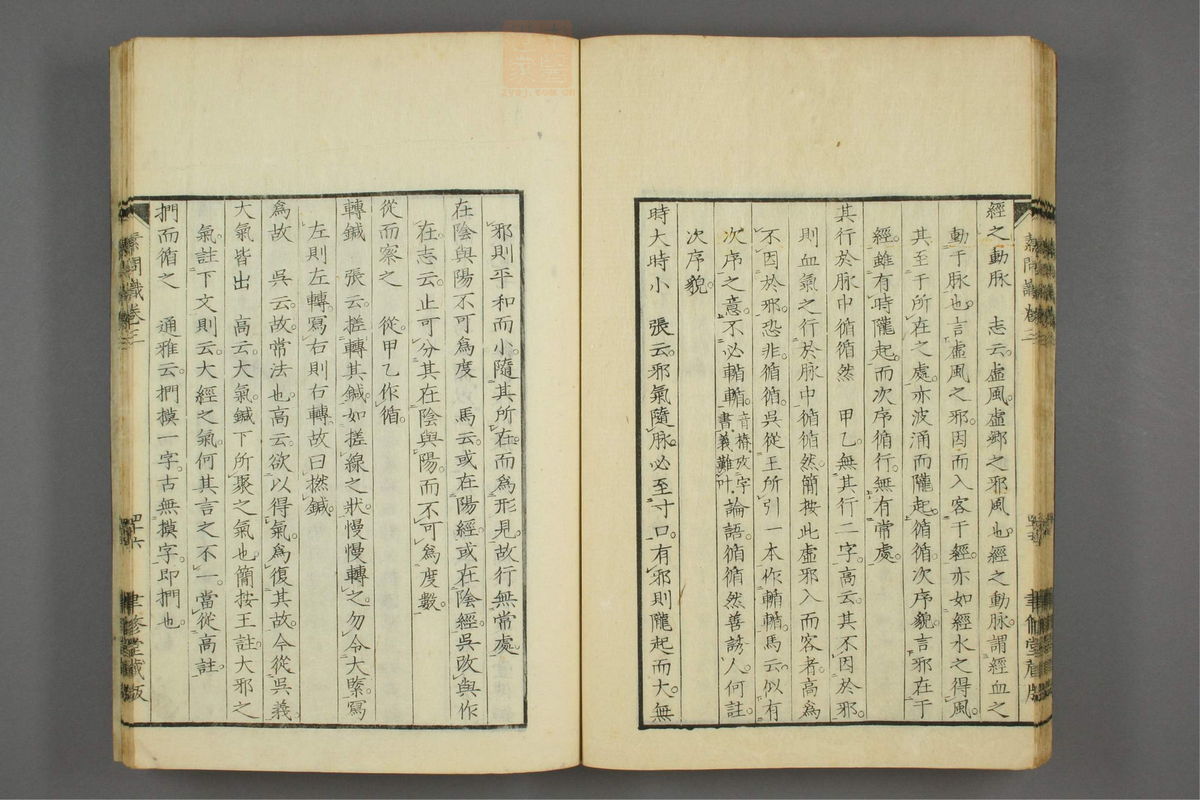 經之動脈　志云。虛風。虛鄉之邪風也。經之動脈。謂經血之
動于脈也。言虛風之邪。因而入客于經。亦如經水之得風。
其至于所在之處。亦波涌而隴起。循循。次序貌。言邪在于
經。雖有時隴起。而次序循行。無有常處。
其行於脈中循循然　甲乙。無其行二字。高云。其不因於邪。
則血氣之行於脈中。循循然。簡按此虛邪入而客者。高爲
不因於邪。恐非。循循。吳從王所引一本作輴輴。馬云。似有
次序之意。不必輴輴。音椿。攷字書義難叶。論語。循循然善誘人。何註
次序貌。
時大時小　張云。邪氣隨脈。必至寸口。有邪則隴起而大。無
邪則平和而小。隨其所在而爲形見。故行無常處。
在陰與陽不可爲度　馬云。或在陽經。或在陰經。吳改與作
在。志云。止可分其在陰與陽。而不可爲度數。
從而察之　從。甲乙作循。
轉鍼　張云。搓轉其鍼。如搓線之狀。慢慢轉之。勿令大緊。寫
左則左轉。寫右則右轉。故曰撚鍼。
爲故　吳云。故。常法也。高云。欲以得氣。爲復其故。今從吳義。
大氣皆出　高云。大氣。鍼下所聚之氣也。簡按王註。大邪之
氣。註下文則云。大經之氣。何其言之不一。當從高註。
捫而循之　通雅云。捫摸一字。古無摸字。即捫也。
素問識卷三
四十六
聿修堂藏版